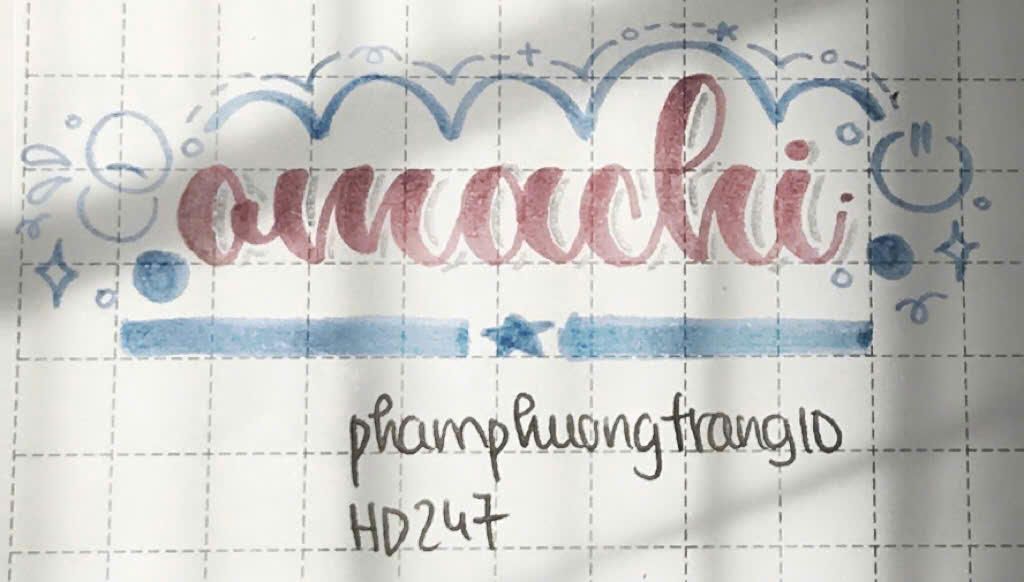 omachi
phamphuongtrang10
HD247